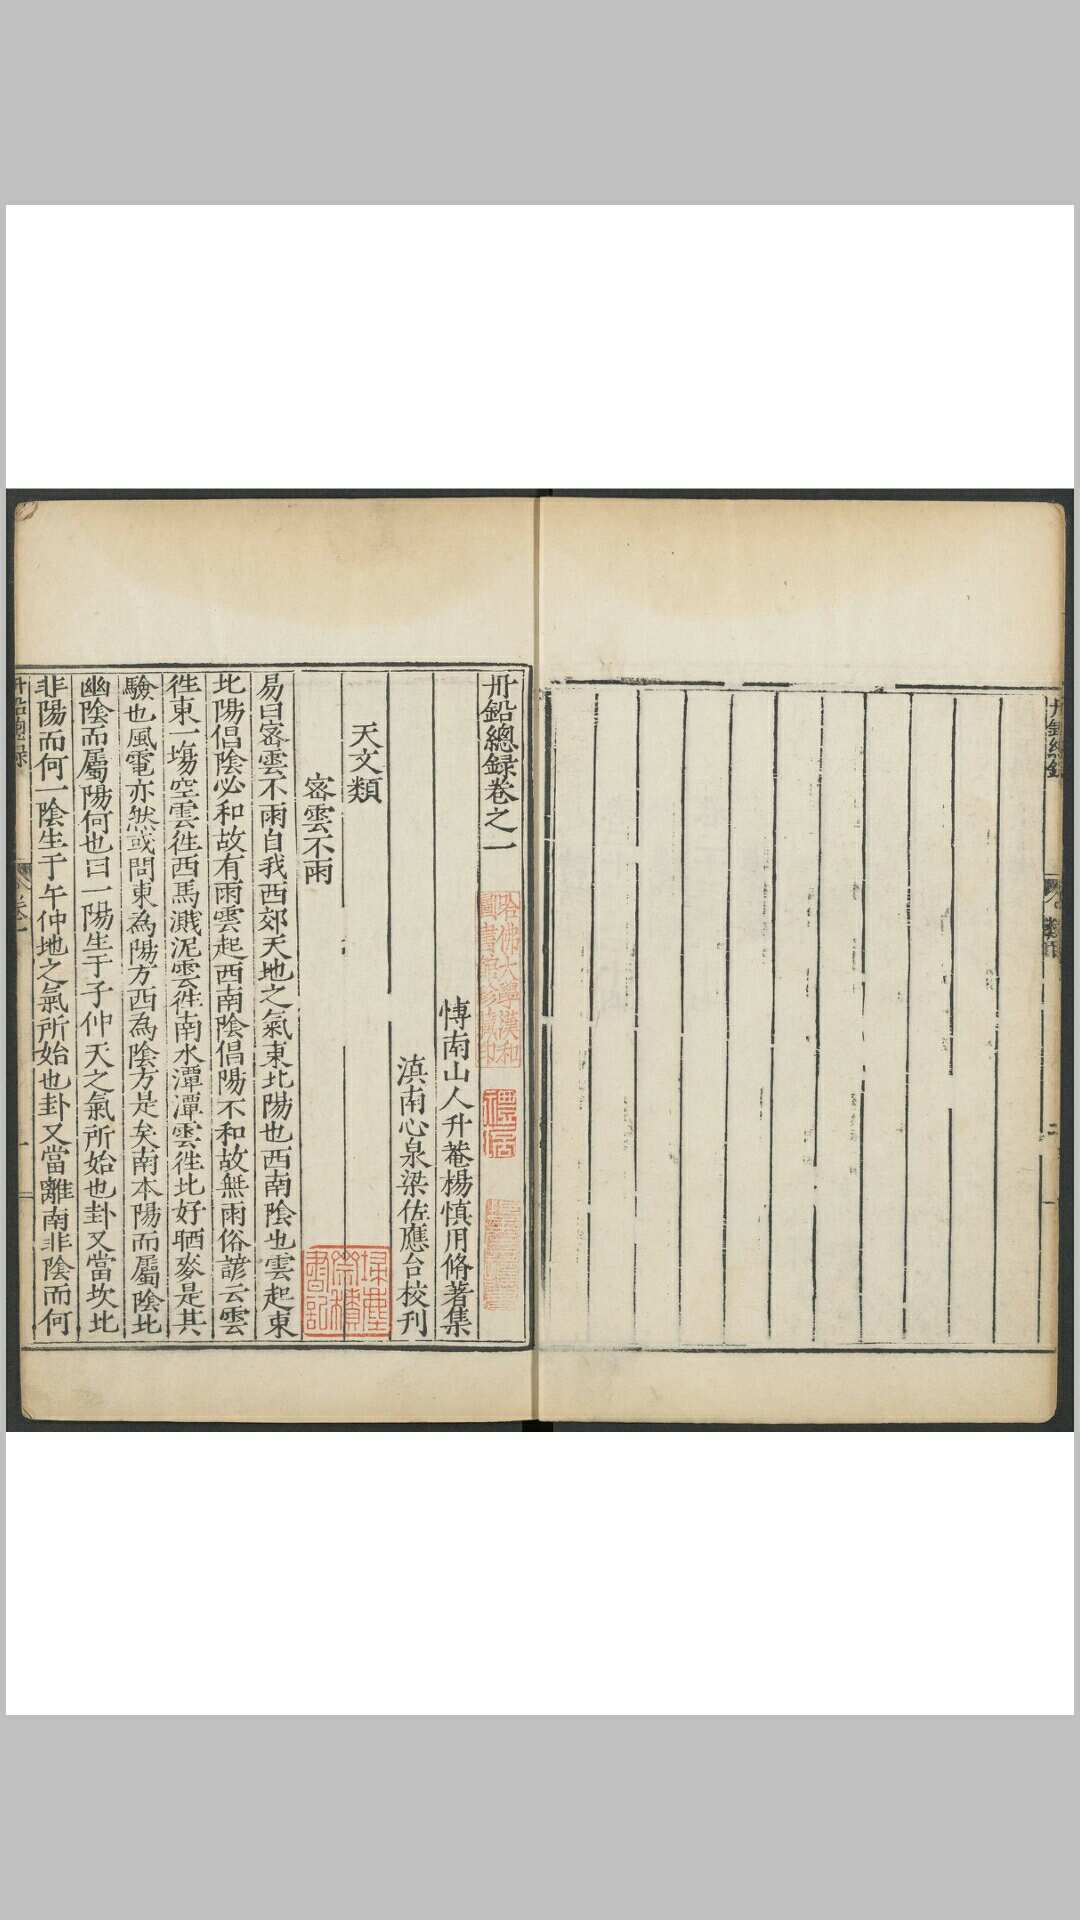 丹鉛總録
丹鉛總録卷之一
博南山人升菴楊慎用脩著集
滇南心泉梁佐應台校刊
天文類
密雲不雨
易曰密雲不雨自我西郊天地之氣東北陽也西南陰也雲起東
北陽倡陰必和故有雨雲起西南陰倡陽不和故無雨俗諺云雲
徃東一塲空雲徃西馬濺泥雲徃南水潭潭雲徃北好晒麥是其
驗也風電亦然或問東為陽方西為陰方是矣南本陽而屬陰北
幽陰而屬陽何也曰一陽生于子仲天之氣所始也卦又當坎北
非陽而何一陰生于午仲地之氣所始也卦又當離南非陰而何
丹鉛總録
卷一
一
哈佛大學漢和
圖書館珍藏印